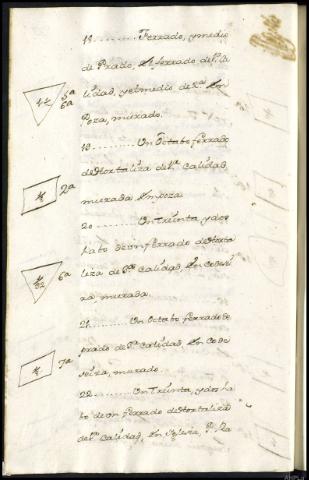 18........ Ferrado, y medio
de Prado, el ferrado de 1ª Ca
lidad, y el medio de 2ª En
Poza, murado.
19.......... Un Octabo ferrado
de Hortaliza de 1ª Calidad,
murada En poza
20.......... Un Treinta, y dos
habo de un ferrado de Horta
liza de 1ª Calidad, En Codesei
ra, murada.
21........ Un Octabo ferrado de
prado de 1ª Calidad, En Code
seira, murado.
22........ Un Treinta, y dos ha
bo de un ferrado de Hortaliza
de 1ª Calidad, En Iglesia, Pª
6ª
2ª
6ª
7ª